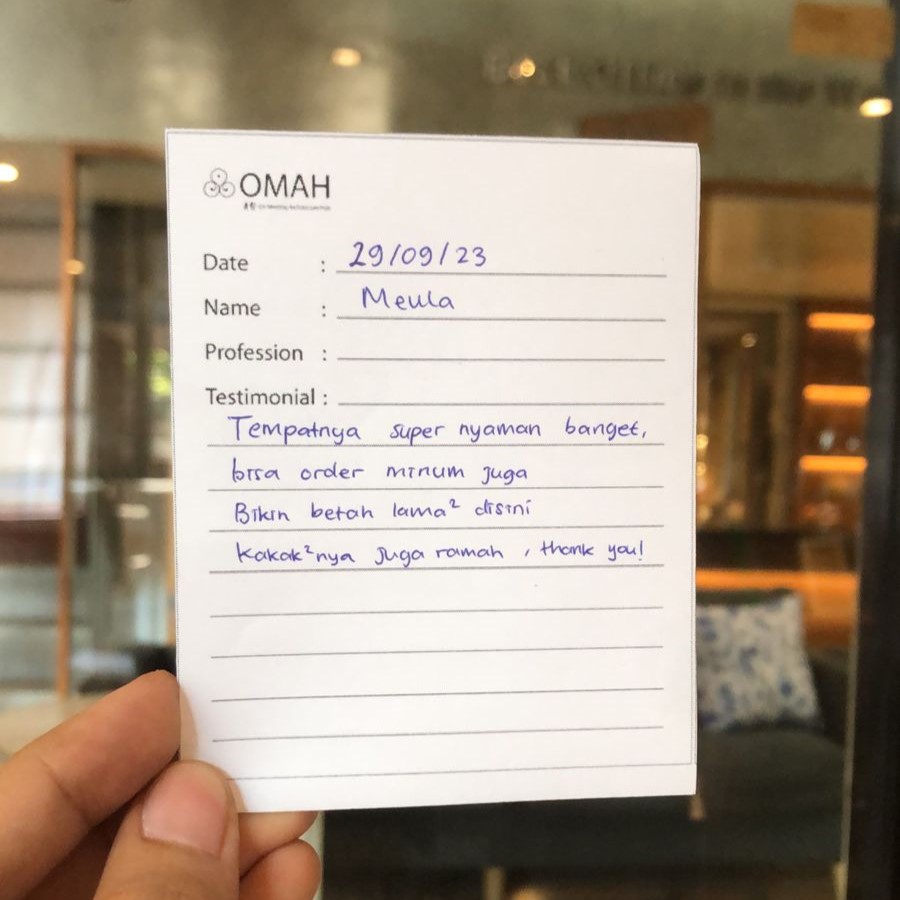 OMAH
Date : 29/09/23
Name : Meula
Profession :
Testimonial :
Tempatnya super nyaman banget,
bisa order minum juga
Bikin betah lama² disini
Kakak²nya juga ramah , thank you!